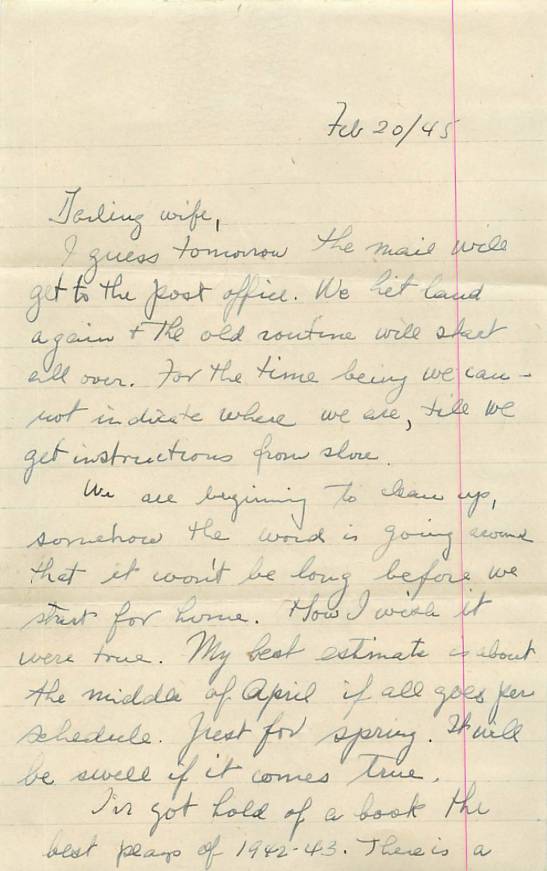 Feb 20/45
Darling wife,
I guess tomorrow the mail will
get to the post office. We hit land
again + the old routine will start
all over. For the time being we can-
not indicate where we are, till we
get instructions from shore.
We are beginning to clean up,
somehow the word is going around
that it won't be long before we
start for home. How I wish it
were true. My best estimate is about
the middle of April if all goes per
schedule. Just for spring. It will
be swell if it comes true.
I've got hold of a book the
best plays of 1942-43. There is a